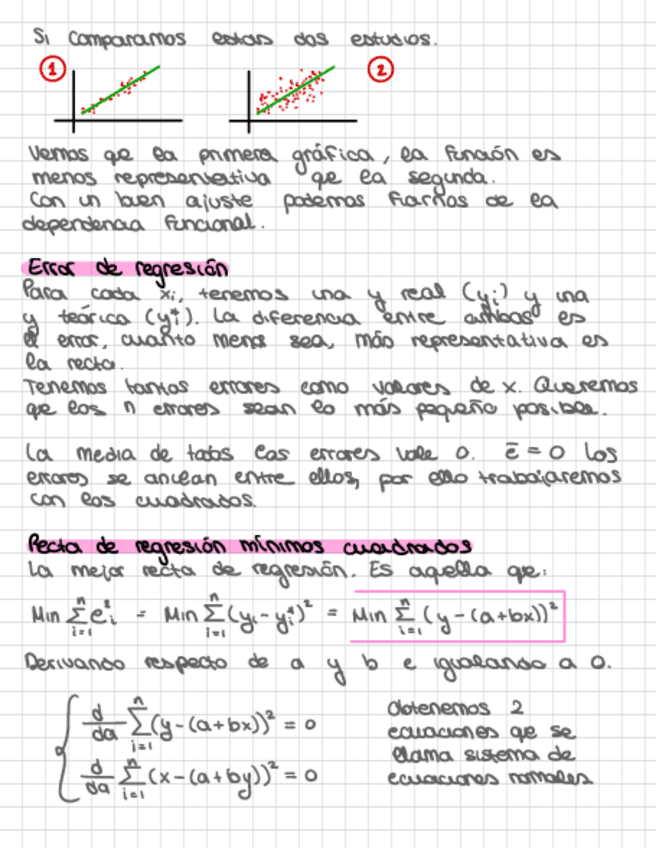 Si comparamos estos dos estudios.
① ②
Vemos qe la primera gráfica, la función es
menos representativa qe la segunda.
Con un buen ajuste podemos fiarnos de la
dependencia funcional.
Error de regresión
Para cada xᵢ, tenemos una y real (yᵢ) y una
y teórica (yᵢ*). La diferencia entre ambos es
el error, cuanto menos sea, más representativa es
la recta.
Tenemos tantos errores como valores de x. Queremos
qe los n errores sean lo más pequeño posible.
La media de todos las errores vale 0. ē = 0 Los
errores se anulan entre ellos, por ello trabajaremos
con los cuadrados.
Recta de regresión mínimos cuadrados
La mejor recta de regresión. Es aquella qe:
Min Σⁿᵢ₌₁ eᵢ² = Min Σⁿᵢ₌₁ (yᵢ - yᵢ*)² = Min Σⁿᵢ₌₁ (y - (a+bx))²
Derivando respecto de a y b e igualando a 0.
d/da Σⁿᵢ₌₁ (y-(a+bx))² = 0
d/da Σⁿᵢ₌₁ (x-(a+by))² = 0
Obtenemos 2
ecuaciones qe se
llama sistema de
ecuaciones normales